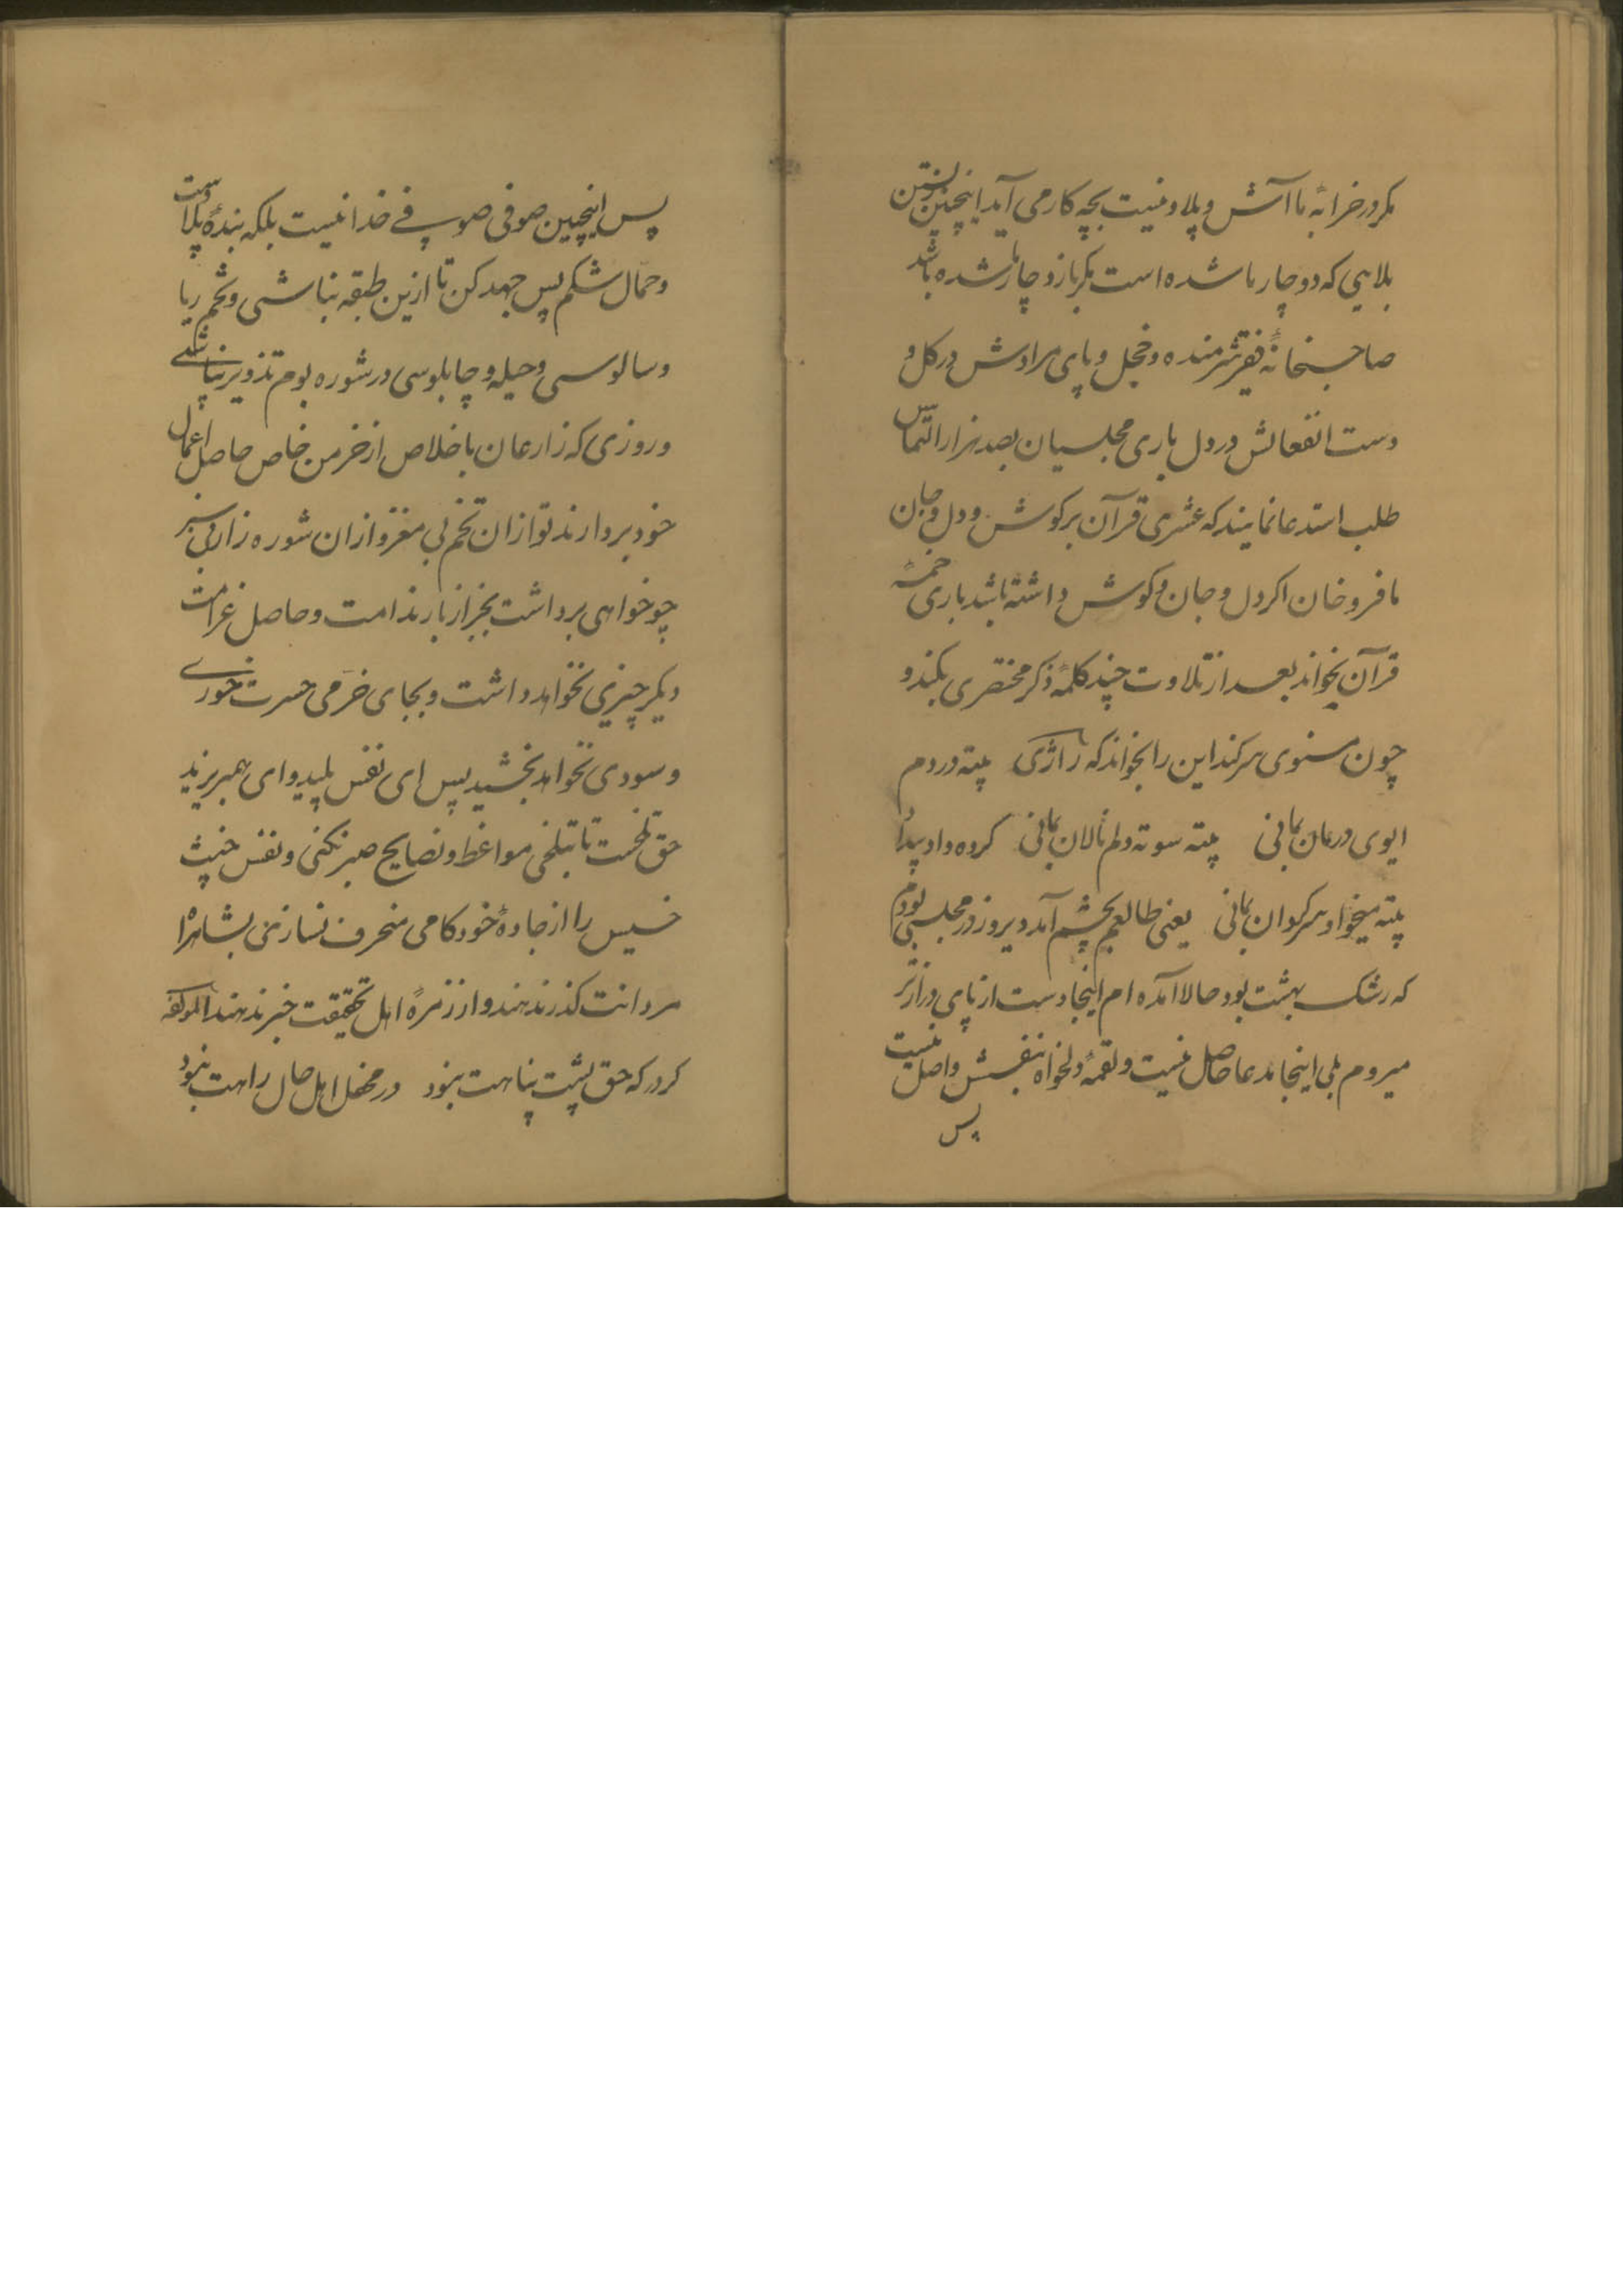 مکر در خرابهٔ ما آش و پلاو نیست بچه کار می آید اینچنین نشستن
بلایی که دو چار ما شده است مکر باز دو چار ما شده باشد
صاحبخانهٔ فقیر شرمنده و خجل و پای مرادش در کل و
دست انفعالش در دل باری مجلسیان بصد هزار التماس
طلب استدعا نمایند که عشری قرآن بر کوش و دل و جان
ما فرو خان اکر دل و جان و کوش داشته باشد باری خمسهٔ
قرآن بخواند بعد از تلاوت چند کلمهٔ ذکر مختصری بکند و
چون مسنوی سر کند این را بخواند که رازی پته دردم
ایوی درمان بمانی پته سوته دلم نالان بمانی کرده داد
پته میخوا و سرکردان بمانی یعنی طالعم بچشم آمد دیروز در مجلسی بودم
که رشک بهشت بود حالا آمده ام اینجا دست از پای درازتر
میروم بلی اینجا مدعا حاصل نیست و لقمهٔ دلخواه بنفسش واصل نیست
پس
پس اینچنین صوفی صوفی خدا نیست بلکه بندهٔ پلاوست
و حمّال شکم پس جهد کن تا ازین طبقه نباشی و تخم ریا
و سالوسی و حیله و چابلوسی در شوره بوم تذویر نپاشی
و روزی که زارعان باخلاص از خرمن خاص حاصل اعمال
خود بردارند تو از ان تخم بی مغز و از ان شوره زار بی بر
چو خواهی برداشت بجز از بار ندامت و حاصل غرامت
دیکر چیزی نخواهد داشت و بجای خرّمی حسرت خوری
و سودی نخواهد بخشید پس ای نفس پلید و ای همبر یزید
حق تلخست تا بتلخی مواعظ و نصایح صبر نکنی و نفس خبیث
خسیس را از جادهٔ خود کامی منحرف نسازی بشاهراه
مردانت کذر ندهند و از زمرهٔ اهل تحقیقت خبر ندهند لمؤلفه
کر در که حق پشت پناهت نبود در محفل اهل حال راهت نبود